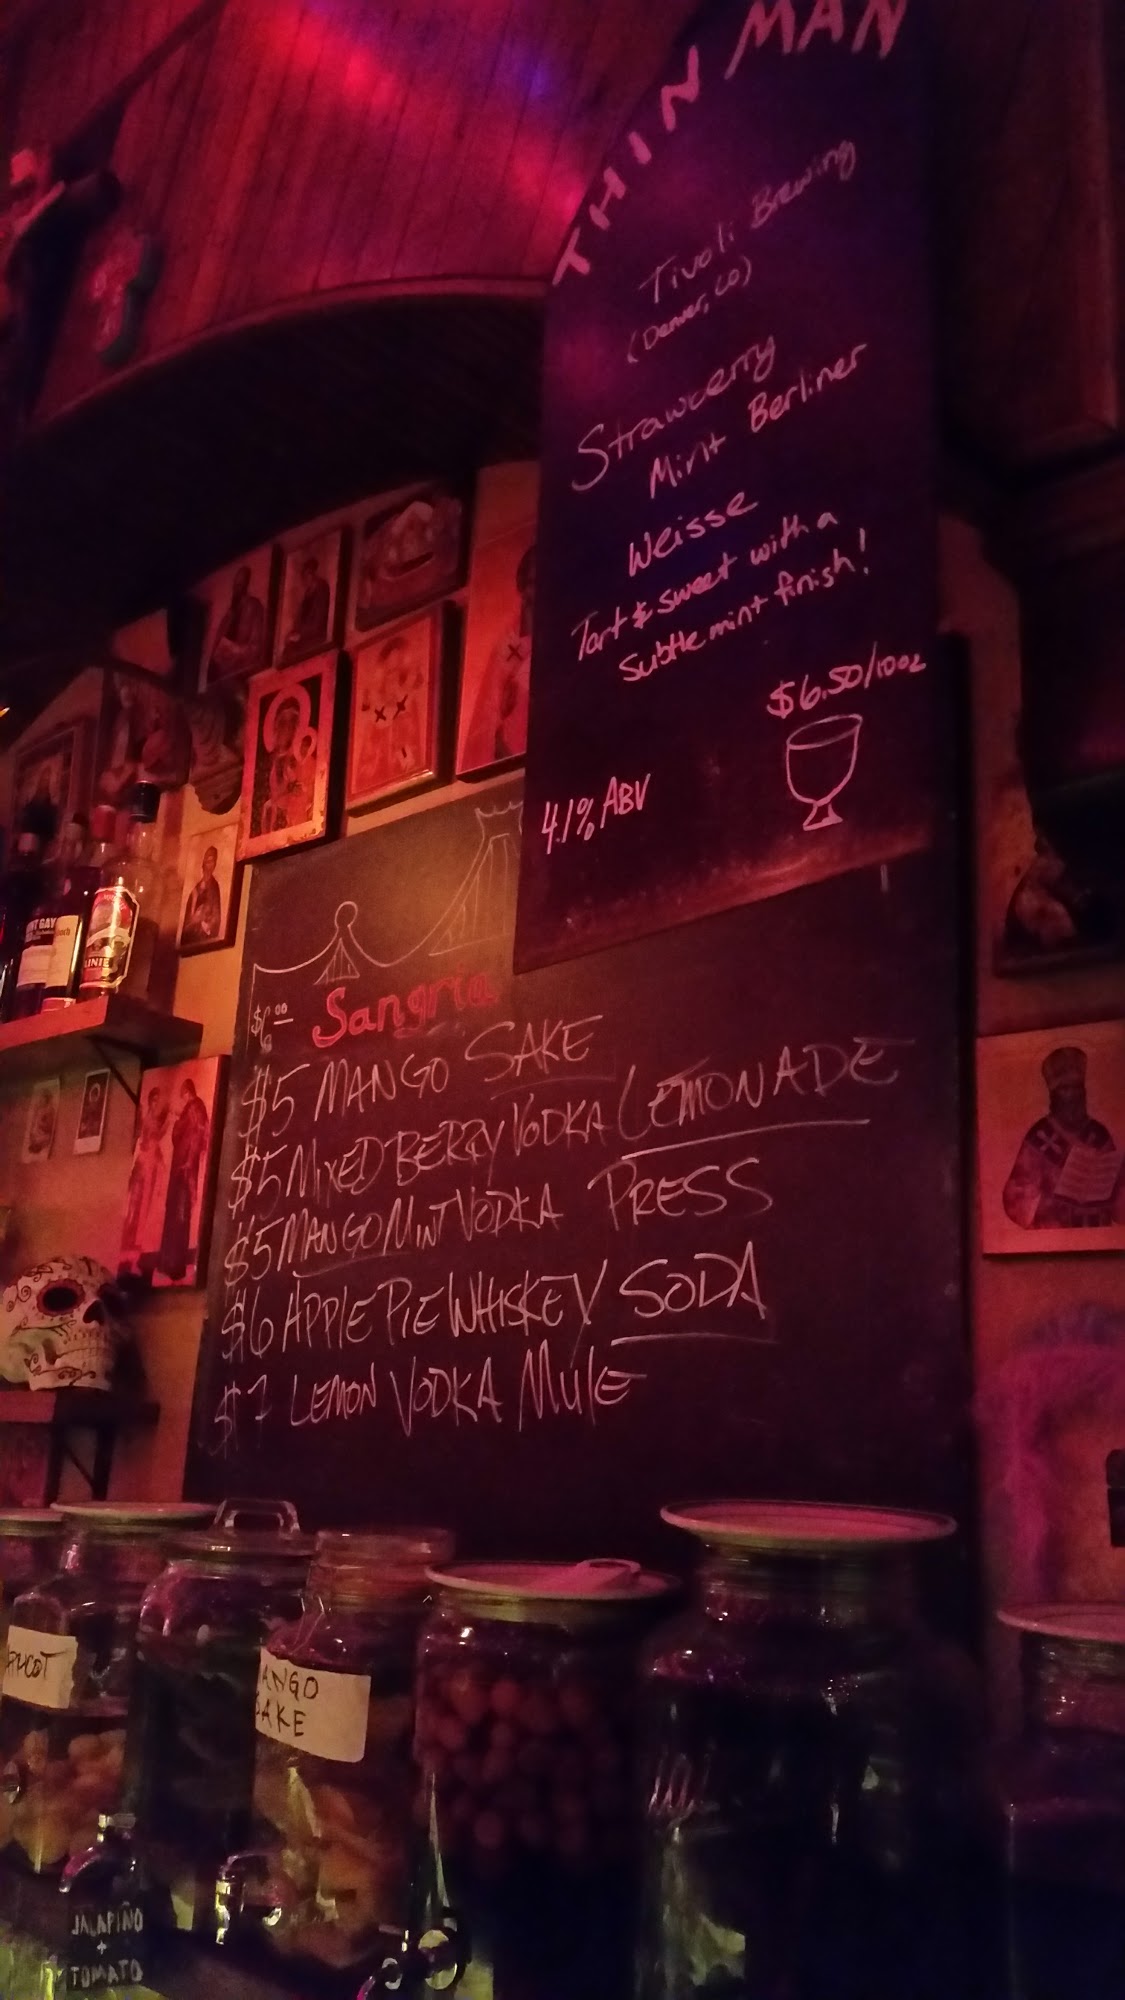 THIN MAN
Tivoli Brewing
(Denver, CO)
Strawberry
Mint Berliner
Weisse
Tart & sweet with a
subtle mint finish!
$6.50/10oz
4.1% ABV
$6.00 Sangria
$5 MANGO SAKE
$5 MIXED BERRY VODKA LEMONADE
$5 MANGO MINT VODKA PRESS
$6 APPLE PIE WHISKEY SODA
$7 LEMON VODKA MULE
NT GAY
LINIE
RICOT
ANGO
SAKE
JALAPIÑO
+
TOMATO